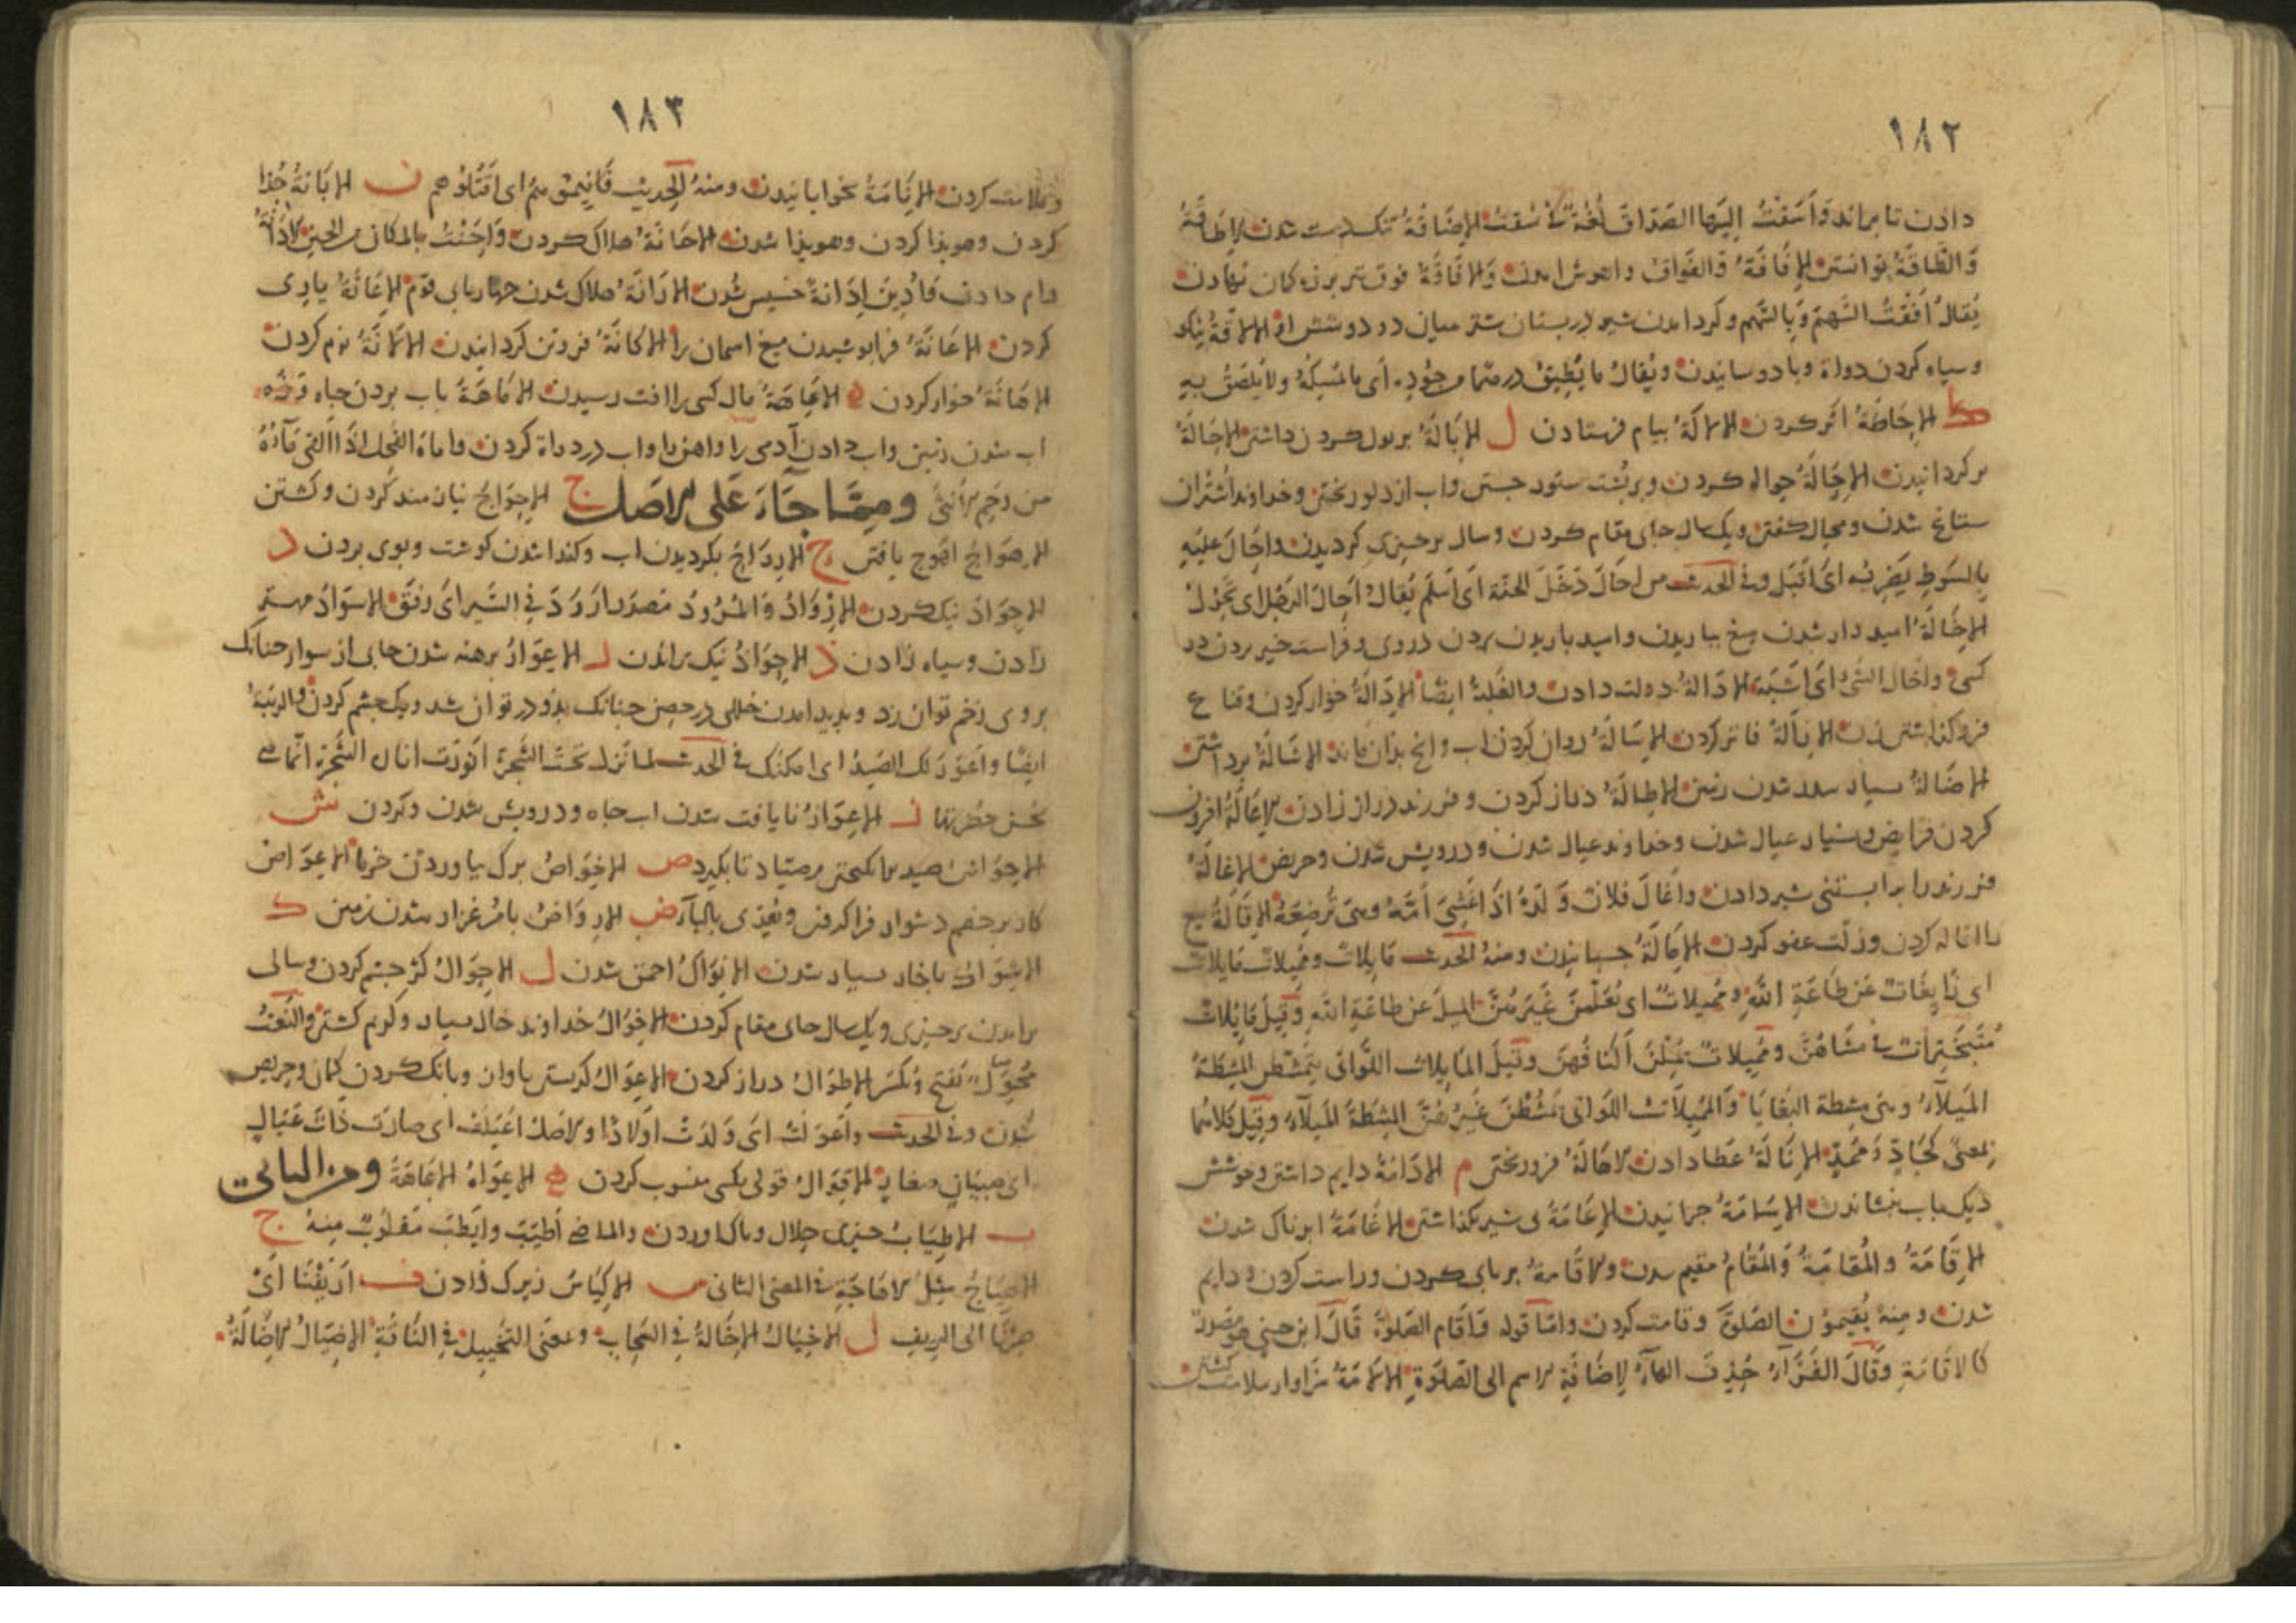 ١٨٢
دادن تا براند وَأَسَقْتُ إِلَيْهَا الصَّدَاقَ لُغَةٌ فى سُقْتُ الإِضَاقَةُ تنک دست شدن الإِطَاقَةُ
وَالطَّاقَةُ توانستن الإِفَاقَةُ وَالفَوَاقُ واهوش امدن وَالإِفَاقَةُ فوق تیر بر زه کمان نهادن
يُقَالُ أَفَقْتُ السَّهْمَ وَبِالسَّهْمِ وکرد امدن شیر در پستان شتر میان دو دوشش الإِلَاقَةُ نیک
و سیاه کردن دواة وبا دوسانیدن وَيُقَالُ مَا يُلِيقُ درهما من جُودِه أى ما يُمْسِكُهُ ولا يَلْصَقُ بِهِ
ک الإِحَاكَةُ اثر کردن الإِلَاكَةُ پیام فرستادن ل الإِبَالَةُ بر بول کردن داشتن الإِحَالَةُ
بر کردانیدن الإِحَالَةُ حواله کردن وبر پشت ستور جستن واب از دلو ریختن وخداوند اشتران
ستاغ شدن ومحال کفتن ویک سال بجای مقام کردن وسال بر چیزی کردیدن وأحَالَ عليهِ
بِالسَّوطِ يَضْرِبُه أى أقبَلَ وفى الحديث من أحَالَ دَخَلَ الجَنَّةَ أى أَسْلَمَ يُقَالُ أَحَالَ الرَّجُلُ أى تَحَوَّلَ
الإِخَالَةُ امیدوار شدن میغ بباریدن وامید باریدن بردن دروى وفراست خیر بردن در
کسى وأخَالَ الشَّىءُ أى اشتَبَهَ الإِدَالَةُ دولت دادن والغَلَبَةُ ايضًا الإِذَالَةُ خوار کردن وقناع
فرو کذاشتن زن الإِزَالَةُ فاتر کردن الإِسَالَةُ روان کردن اب وانچ بدان ماند الإِشَالَةُ برداشتن
الإِضَالَةُ بسیار سدر شدن زمین الإِطَالَةُ دراز کردن وفرزند دراز زادن الإِعَالَةُ افزون
کردن فرایض وبسیار عیال شدن وخداوند عیال شدن ودرویش شدن وحریص الإِغَالَةُ
فرزند را بر ابستنى شیر دادن وأغَالَ فلانٌ وَلَدَهُ إذا غَشِيَ أُمَّهُ وهىَ تُرْضِعُهُ الإِقَالَةُ بیع
را اقاله کردن وزلّت عفو کردن الإِمَالَةُ چسبانیدن ومنهُ الحديث مَايِلَاتٌ ومُمِيلَاتٌ مَايِلَاتٌ
أى زَايِغَاتٌ عَن طَاعَةِ اللهِ ومُمِيلَاتٌ أى يُعَلِّمْنَ غَيْرَهُنَّ المَيلَ عن طاعَةِ اللهِ وَقِيلَ مَايِلَاتٌ
مُتَبَخْتِرَاتٌ فى مَشْيِهِنَّ ومُمِيلَاتٌ يُمِلْنَ أَكْتَافَهُنَّ وقيلَ المَايِلَاتُ اللَّوَاتى يَمْتَشِطْنَ المِشْطَةَ
المَيْلَاءَ وهىَ مِشطة البَغَايَا وَالمُمِيلَاتُ اللَّوَاتى يَمْشُطْنَ غَيْرَهُنَّ المِشْطَةَ المَيْلَاءَ وقيلَ كلاهُما
بمعنًى كَجَادٍّ ومُجِدٍّ الإِنَالَةُ عَطا دادن الإِهَالَةُ فرو ریختن م الإِدَامَةُ دایم داشتن وجوشش
دیک باب بنشاندن الإِسَامَةُ چرانیدن الإِعَامَةُ بى شیر بکذاشتن الإِغَامَةُ ابرناک شدن
الإِقَامَةُ والمُقَامَةُ وَالمُقَامُ مقیم شدن والإِقَامَةُ بر پاى کردن وراست کردن ودایم
شدن ومنهُ يُقِيمُونَ الصَّلوةَ وقامت کردن وامّا قوله وَإِقَامَ الصَّلوةَ قَالَ ابن جنى هو مَصْدَرٌ
كالإِقَامَةِ وَقَالَ الفَرَّاءُ حُذِفَ الهاءُ لإِضَافَةِ الاسم الى الصَّلوةِ الإِلَامَةُ سزاوار ملامت کشتن
١٨٣
وملامت کردن الإِنَامَةُ بخوابانیدن ومنهُ الحديث فَأَنِيمُوهُم أى اقتُلُوهم ن الإِبَانَةُ جُدا
کردن وهویدا کردن وهویدا شدن الإِحَانَةُ هلاک کردن وَأَحَنْتُ بالمكان من الحين الإِدَانَةُ
وام دادن وَأُدِينَ إِدَانَةً خسیس شدن الإِرَانَةُ هلاک شدن چهارپاى قوم الإِعَانَةُ یارى
کردن الإِغَانَةُ فرا پوشیدن میغ اسمان را الإِكَانَةُ فروتن کردانیدن الإِلَانَةُ نرم کردن
الإِهَانَةُ خوار کردن ه الإِعَاهَةُ مال کسى را افت رسیدن الإِمَاهَةُ باب بردن چاه وَجُزه
اب شدن زمین واب دادن آدمى را واهن را واب در دواة کردن وأماهَ الفَحلُ إذا ألقى مَاءَهُ
من رَحِمِ الأنثى وَمِمَّا جَاءَ عَلى الأصل ج الإِحوَاجُ نیازمند کردن وکشتن
الإِهوَاجُ اهوج یافتن ح الإِروَاحُ بکردیدن اب وکندا شدن کوشت وبوى بردن د
الإِجوَادُ نیک کردن الإِروَادُ وَالمُرْوَدُ مَصْدَر أَرْوَدَ فى السَّيرِ أى رَفَقَ الإِسوَادُ مهتر
زادن وسیاه زادن ذ الإِحوَاذُ نیک راندن ر الإِعوَارُ برهنه شدن جاى از سوار چنانک
بروى زخم توان زد وپدید امدن خللى در حصن چنانک بدو در توان شد ویک چشم کردن والرِّيبَةُ
ايضًا وأعْوَرَ لكَ الصَّيدُ أى أمكَنَكَ فى الحديث لما نَزَلَ تَحتَ الشَّجَرة أَنْوَرَت
ز الإِعوَازُ نایافت شدن اب چاه ودرویش شدن وکردن ش
الإِحوَاشُ صید برانکیختن بر صیّاد تا بکیرد ص الإِخوَاصُ برک بیاوردن خرما الإِعوَاصُ
کار بر خصم دشوار فرا کرفتن ويُعَدّى بالباء ض الإِروَاضُ با مرغزار شدن زمین ک
الإِشوَاكُ باخار بسیار شدن الإِنوَاكُ احمق شدن ل الإِحوَالُ کژ چشم کردن وسالى
برامدن بر چیزى ویک سال بجاى مقام کردن الإِخوَالُ خداوند خال بسیار وکریم کشتن والنَّعتُ
مُخوَلٌ بفتح وکسر الإِطوَالُ دراز کردن الإِعوَالُ کریستن باواز وبانک کردن کمان وحریص
شدن وفى الحديث وأعوَلَتْ أى وَلَدَتْ أولَادًا والاصلُ أعيَلَتْ أى صارَت ذاتَ عِيَالٍ
أى صِبيَانٍ صِغَارٍ الإِقوَالُ قولى بکسى منسوب کردن ه الإِعوَاهُ الإِعَاهَةُ ومن اليائى
ب الإِطيَابُ چیزى حلال وپاک اوردن والماضى أطيَبَ وأيطَبَ مَقلُوبٌ مِنهُ ج
مِثلُ الإِهَاجَةِ فى المعنى الثانى س الإِكيَاسُ زیرک زادن ف أَرْيَفْنَا أى
صِرْنَا الى الرِّيفِ ل الإِخيَالُ الإِخَالَةُ فى السَّحَابِ وبمعنى التَّخييل فى النَّاقَةِ الإِضيَالُ الإِضَالَةُ